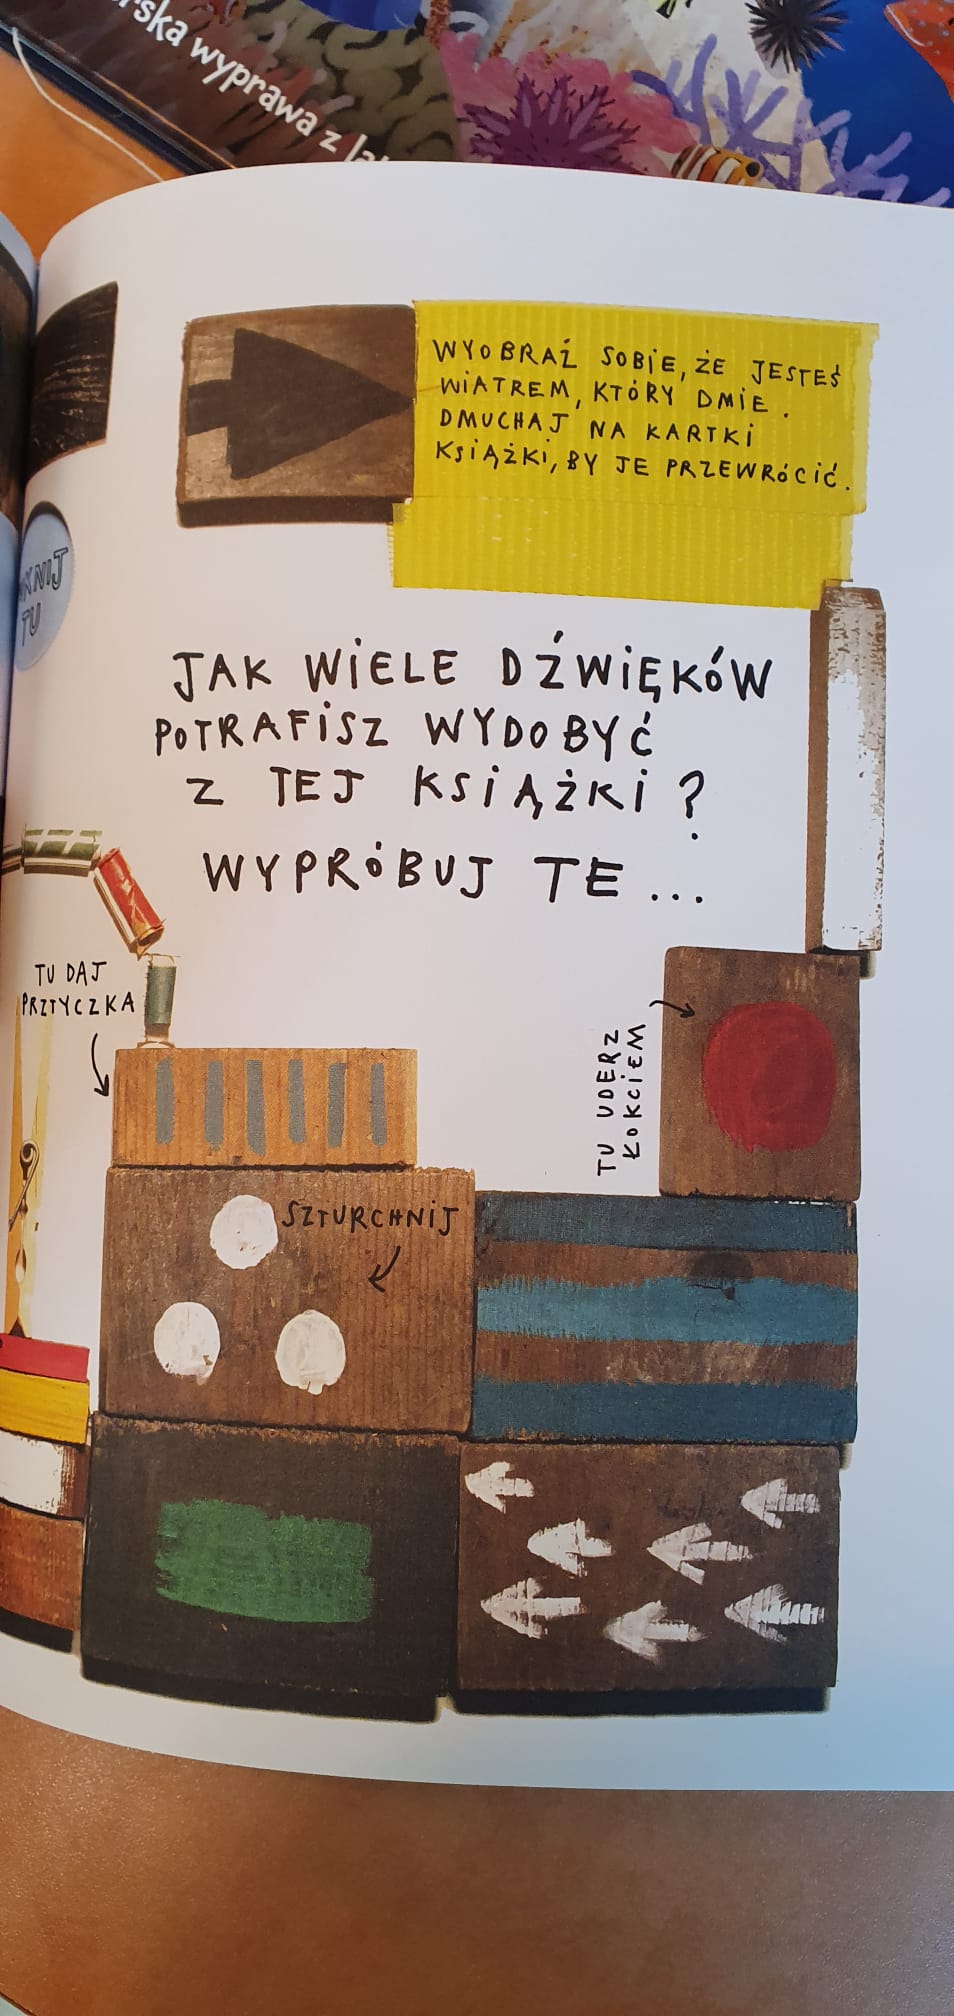 wyprawa z
WYOBRAŹ SOBIE, ŻE JESTEŚ
WIATREM, KTÓRY DMIE.
DMUCHAJ NA KARTKI
KSIĄŻKI, BY JE PRZEWRÓCIĆ.
TU
JAK WIELE DŹWIĘKÓW
POTRAFISZ WYDOBYĆ
Z TEJ KSIĄŻKI?
WYPRÓBUJ TE...
TU DAJ
PRZTYCZKA
TU UDERZ
ŁOKCIEM
SZTURCHNIJ